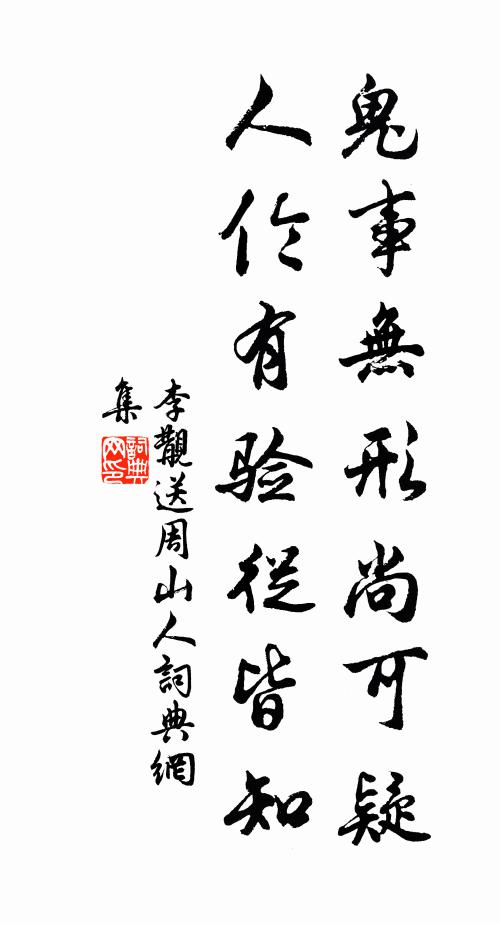 鬼事無形尚可疑
人伦有验從皆知
李覯送周山人詞典網
集
詞典
网印